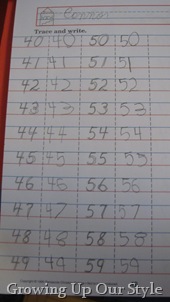 Connor
Trace and write.
40 40 50 50
41 41 51 51
42 42 52 52
43 43 53 53
44 44 54 54
45 45 55 55
46 46 56 56
47 47 57 57
48 48 58 58
49 49 59 59
Growing Up Our Style